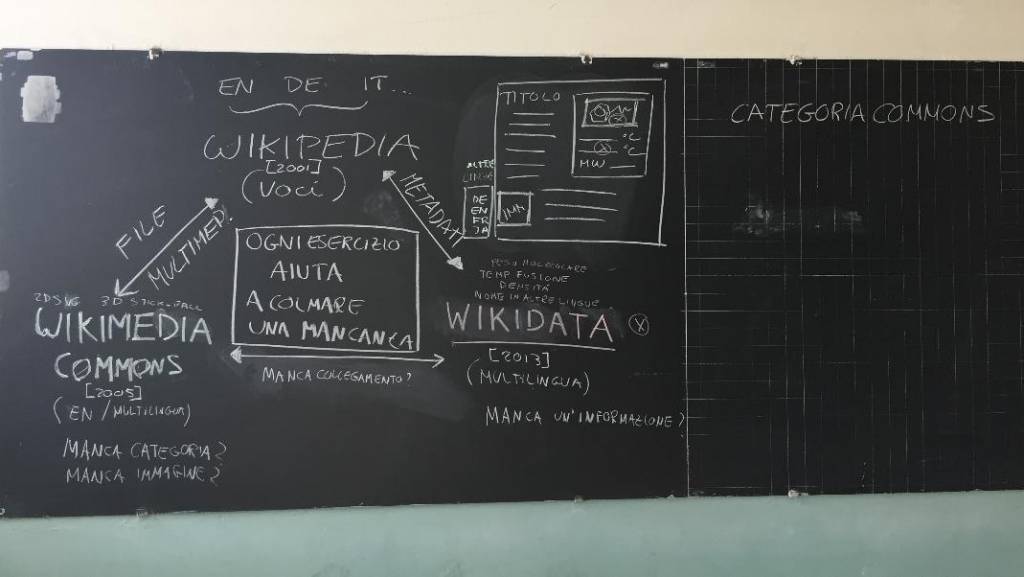 EN DE IT...
WIKIPEDIA
[2001]
(VOCI)
FILE
MULTIMED.
METADATI
OGNI ESERCIZIO
AIUTA
A COLMARE
UNA MANCANZA
2D SVG 3D STICK-BALL
WIKIMEDIA
COMMONS
[2005]
(EN/MULTILINGUA)
MANCA CATEGORIA?
MANCA IMMAGINE?
MANCA COLLEGAMENTO?
PESO MOLECOLARE
TEMP FUSIONE
DENSITÀ
NOME IN ALTRE LINGUE
WIKIDATA
[2013]
(MULTILINGUA)
MANCA UN'INFORMAZIONE?
TITOLO
°C
°C
MW
ALTRE
LINGUE
DE
EN
FR
JA
IMM
CATEGORIA COMMONS